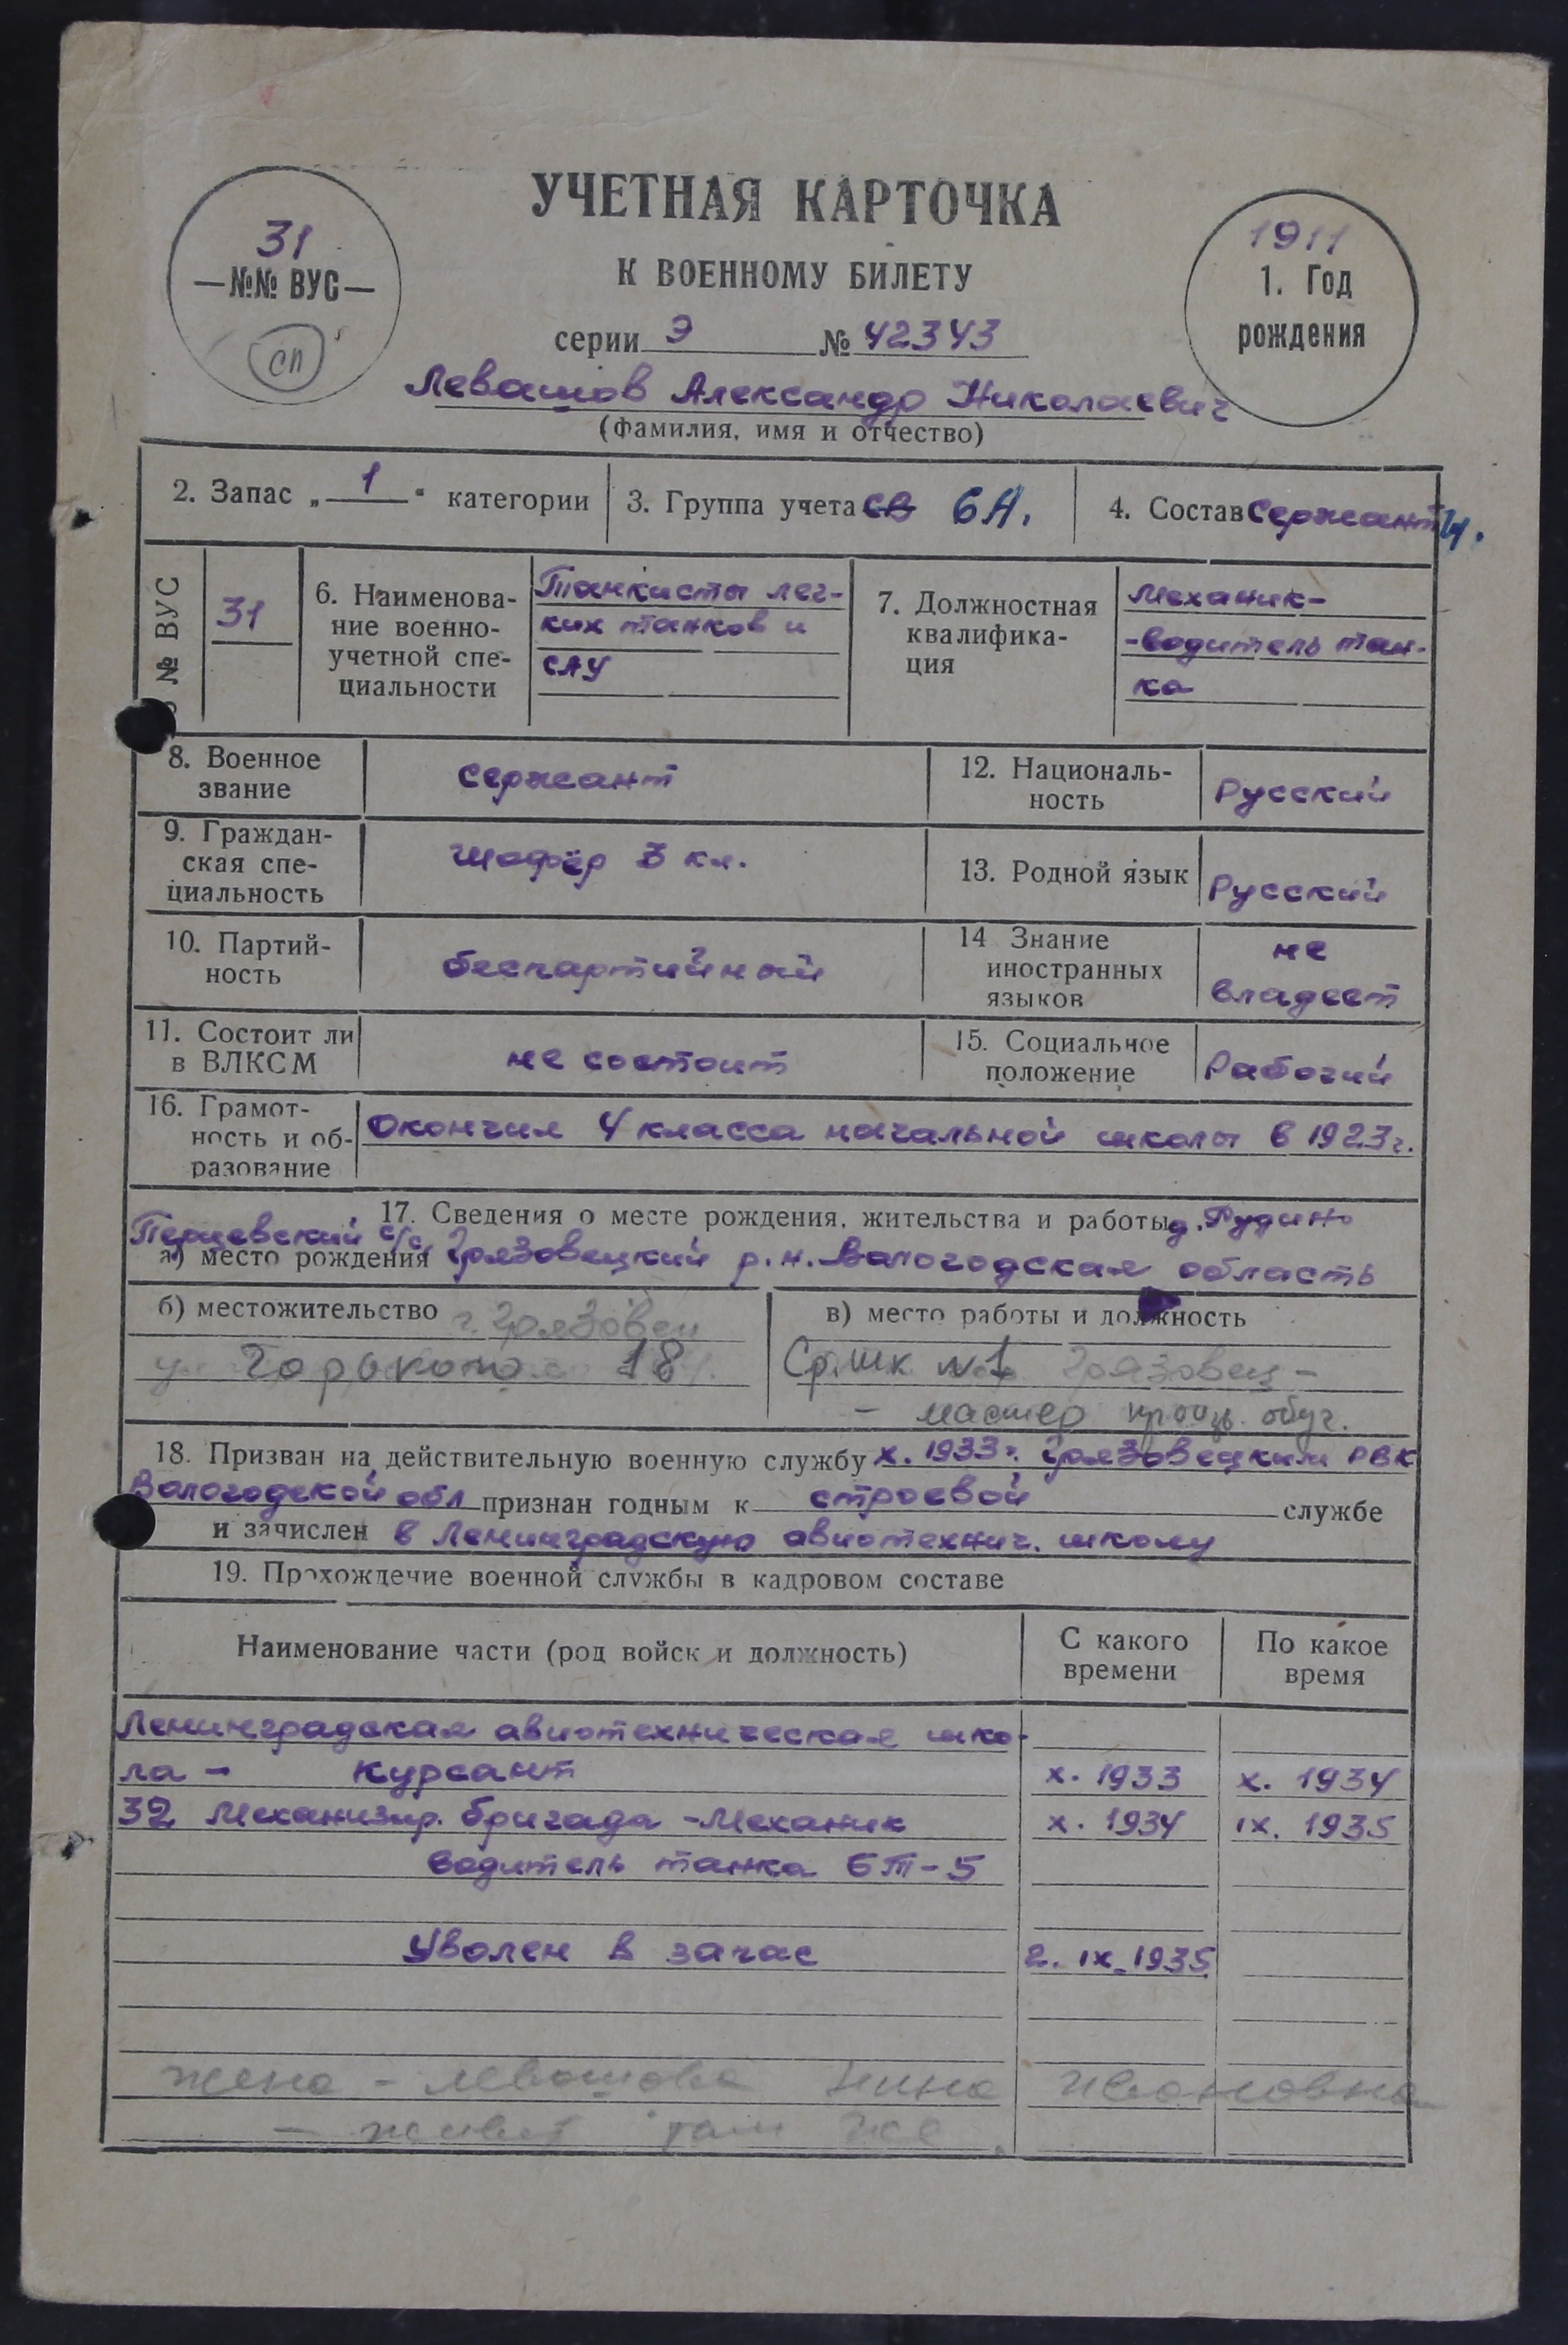 УЧЕТНАЯ КАРТОЧКА
К ВОЕННОМУ БИЛЕТУ
31
—№№ ВУС—
сп
1911
1. Год
рождения
серии Э № 42343
Левашов Александр Николаевич
(фамилия, имя и отчество)
2. Запас „ 1 “ категории
3. Группа учета св 6А.
4. Состав Сержанты.
№ ВУС
31
6. Наименова-
ние военно-
учетной спе-
циальности
Танкисты лег-
ких танков и
САУ
7. Должностная
квалифика-
ция
Механик-
-водитель тан-
ка
8. Военное
звание
сержант
12. Националь-
ность
Русский
9. Граждан-
ская спе-
циальность
Шофёр 3 кл.
13. Родной язык
Русский
10. Партий-
ность
беспартийный
14 Знание
иностранных
языков
не
владеет
11. Состоит ли
в ВЛКСМ
не состоит
15. Социальное
положение
Рабочий
16. Грамот-
ность и об-
разование
Окончил 4 класса начальной школы в 1923г.
17. Сведения о месте рождения, жительства и работы д. Рудино
Перцевский с/с,
а) место рождения Грязовецкий р.н. Вологодская область
б) местожительство г. Грязовец
ул Горького 18
в) место работы и должность
Ср. шк №1 Грязовец -
- мастер произв. обуч.
18. Призван на действительную военную службу х. 1933г. Грязовецким РВК
Вологодской обл признан годным к строевой службе
и зачислен в Ленинградскую авиотехнич. школу
19. Прохождение военной службы в кадровом составе
Наименование части (род войск и должность)
С какого
времени
По какое
время
Ленинградская авиотехническая шко-
ла - Курсант х. 1933 х. 1934
32 Механизир. бригада - Механик х. 1934 IX. 1935
водитель танка БТ-5
Уволен в запас 2. IX. 1935
жена - Левашова Нина Ивановна
- живет там же.